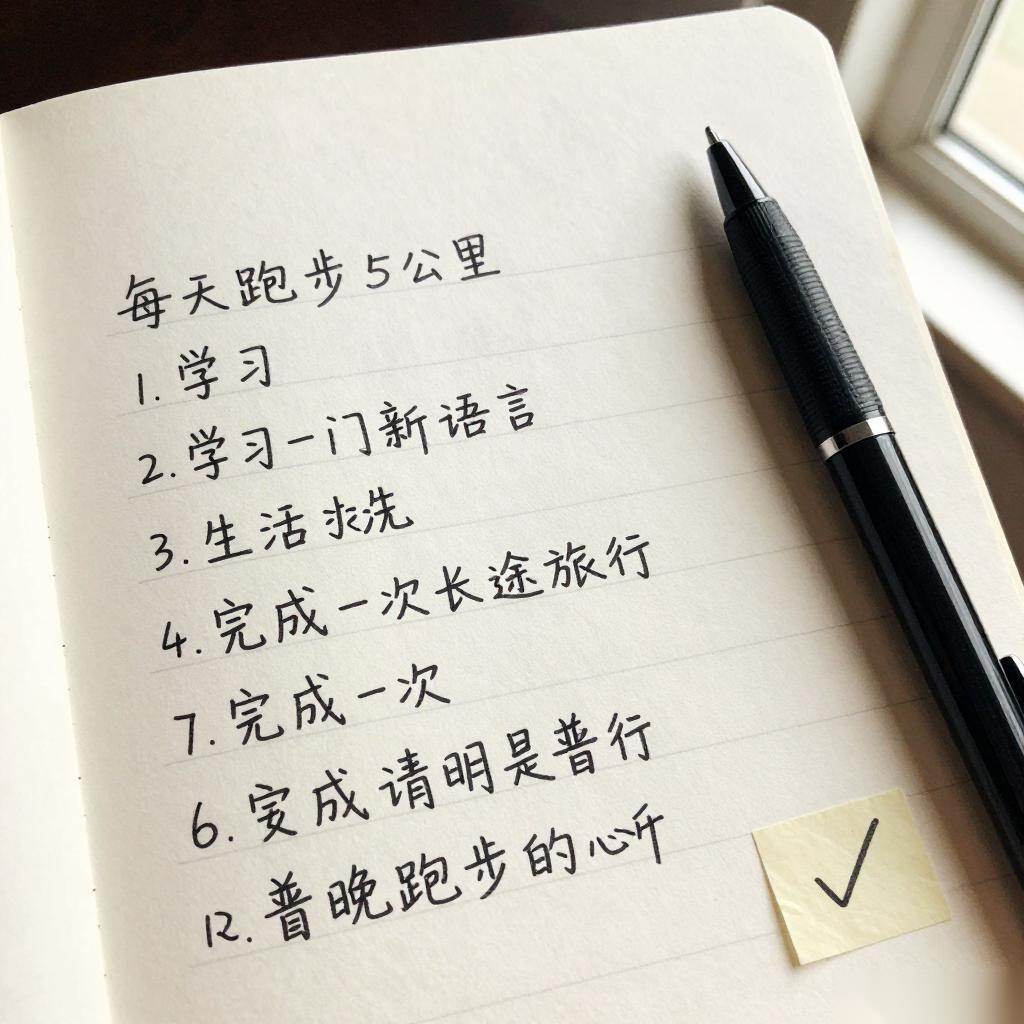 每天跑步5公里
1. 学习
2. 学习一门新语言
3. 生活
4. 完成一次长途旅行
7. 完成一次
6. 成请明是普行
12. 普晚跑步的